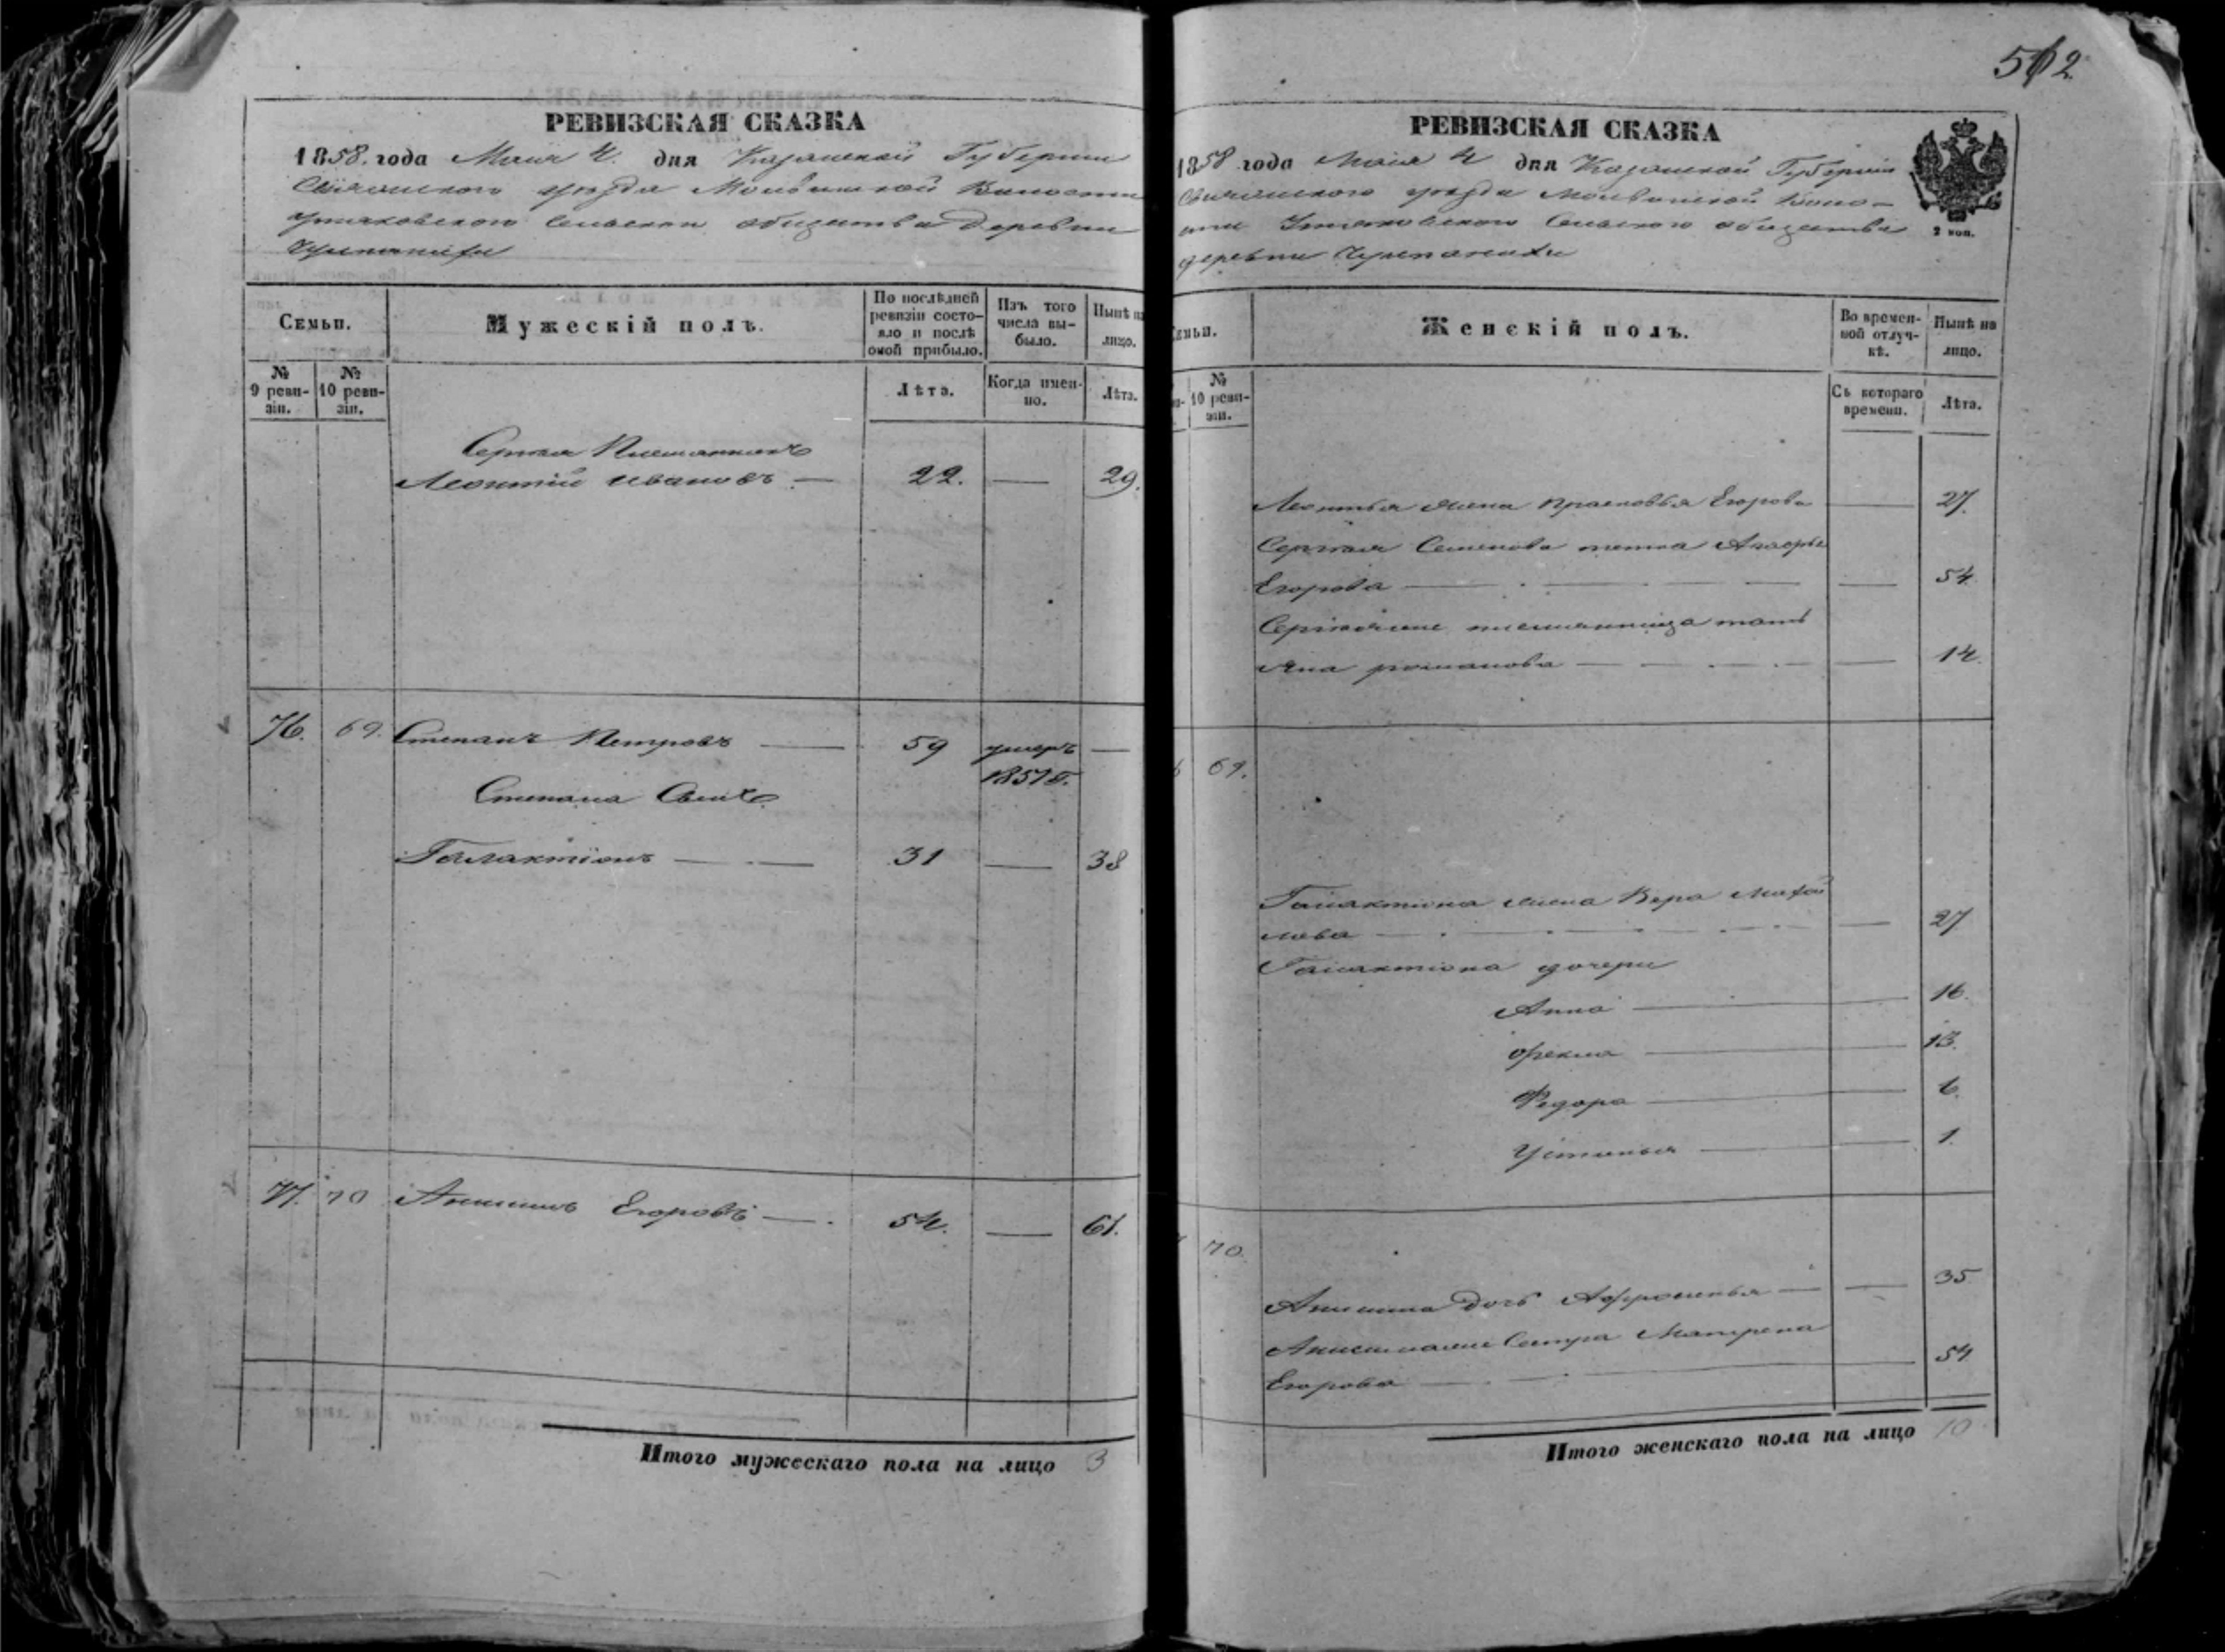 562
РЕВИЗСКАЯ СКАЗКА
1858. года Маия 4. дня Казанской Губернии
Свіяжскаго уезда Волости
сельскаго общества Деревни
Семьи.
Мужескій полъ.
По послѣдней ревизіи состояло и послѣ оной прибыло.
Изъ того числа выбыло.
Нынѣ на лицо.
№ 9 ревизіи.
№ 10 ревизіи.
Лѣта.
Когда именно.
Лѣта.
Сергея Племянникъ
Леонтій Ивановъ — 22. — 29.
76. 69. Степанъ Петровъ — 59 умеръ —
1851 г.
Степана Сынъ
Галактіонъ — 31 — 38
77. 70 Анисимъ Егоровъ — 54. — 61.
Итого мужескаго пола на лицо 3
РЕВИЗСКАЯ СКАЗКА
1858 года Маия 4 дня Казанской Губерніи
Свіяжскаго уезда Воло-
сти Сельскаго общества
деревни
2 коп.
Семьи.
Женскій полъ.
Во временной отлучкѣ.
Нынѣ на лицо.
№ 10 ревизіи.
Съ котораго времени.
Лѣта.
Леонтья жена Прасковья Егорова — 27.
Сергея Семенова тетка
Егорова — — 54.
племянница Тать
яна романова — — 14.
69.
Галактіона жена Вера Михай
лова — — 27
Галактіона дочери
Анна — 16.
Фекла — 13.
Федора — 6.
Устинья — 1.
70.
Анисима дочь Афросинья — — 35
Сестра Матрена
Егорова — 54
Итого женскаго пола на лицо 10